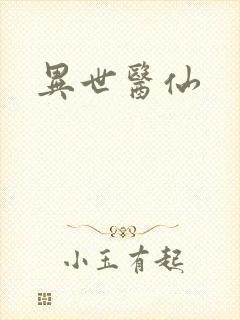 異世醫仙
小玉有起